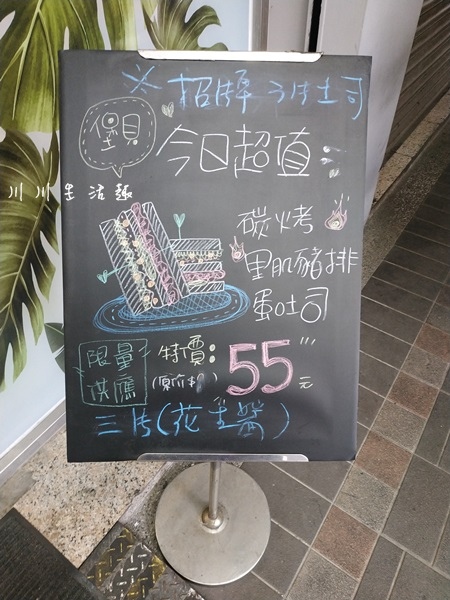 ※招牌3片土司
堡貝
今日超值:
川川生活趣
碳烤
里肌豬排
蛋吐司
限量
供應
特價:
55元
三片(花生醬)